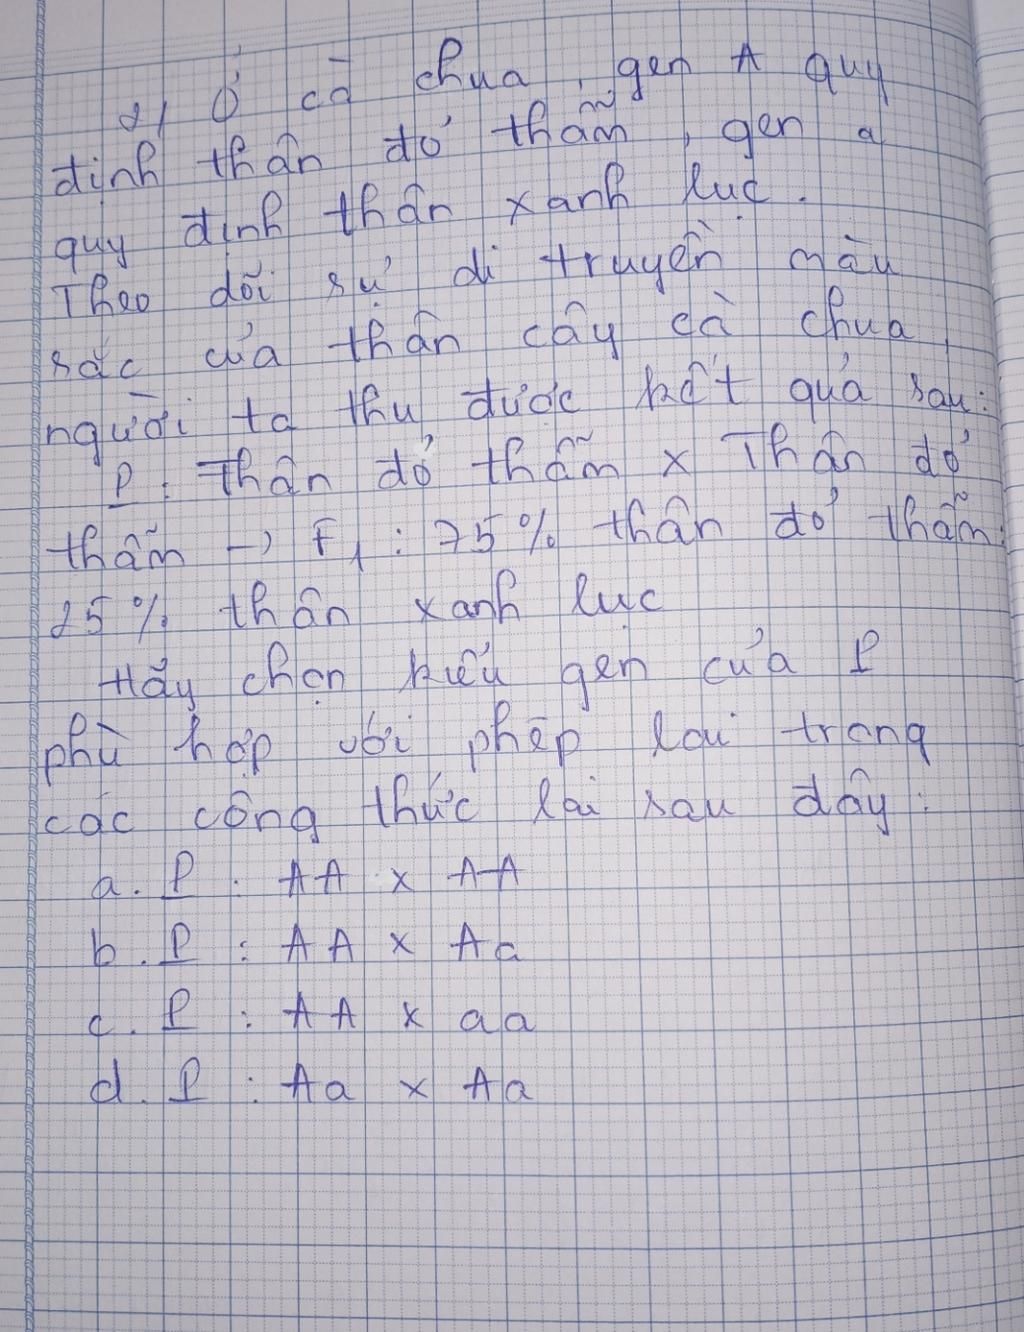 2/ Ở cà chua, gen A quy
định thân đỏ thẫm, gen a
quy định thân xanh lục.
Theo dõi sự di truyền màu
sắc của thân cây cà chua,
người ta thu được kết quả sau:
P: Thân đỏ thẫm x Thân đỏ
thẫm → F1: 75% thân đỏ thẫm:
25% thân xanh lục
Hãy chọn kiểu gen của P
phù hợp với phép lai trong
các công thức lai sau đây:
a. P: AA x AA
b. P: AA x Aa
c. P: AA x aa
d. P: Aa x Aa